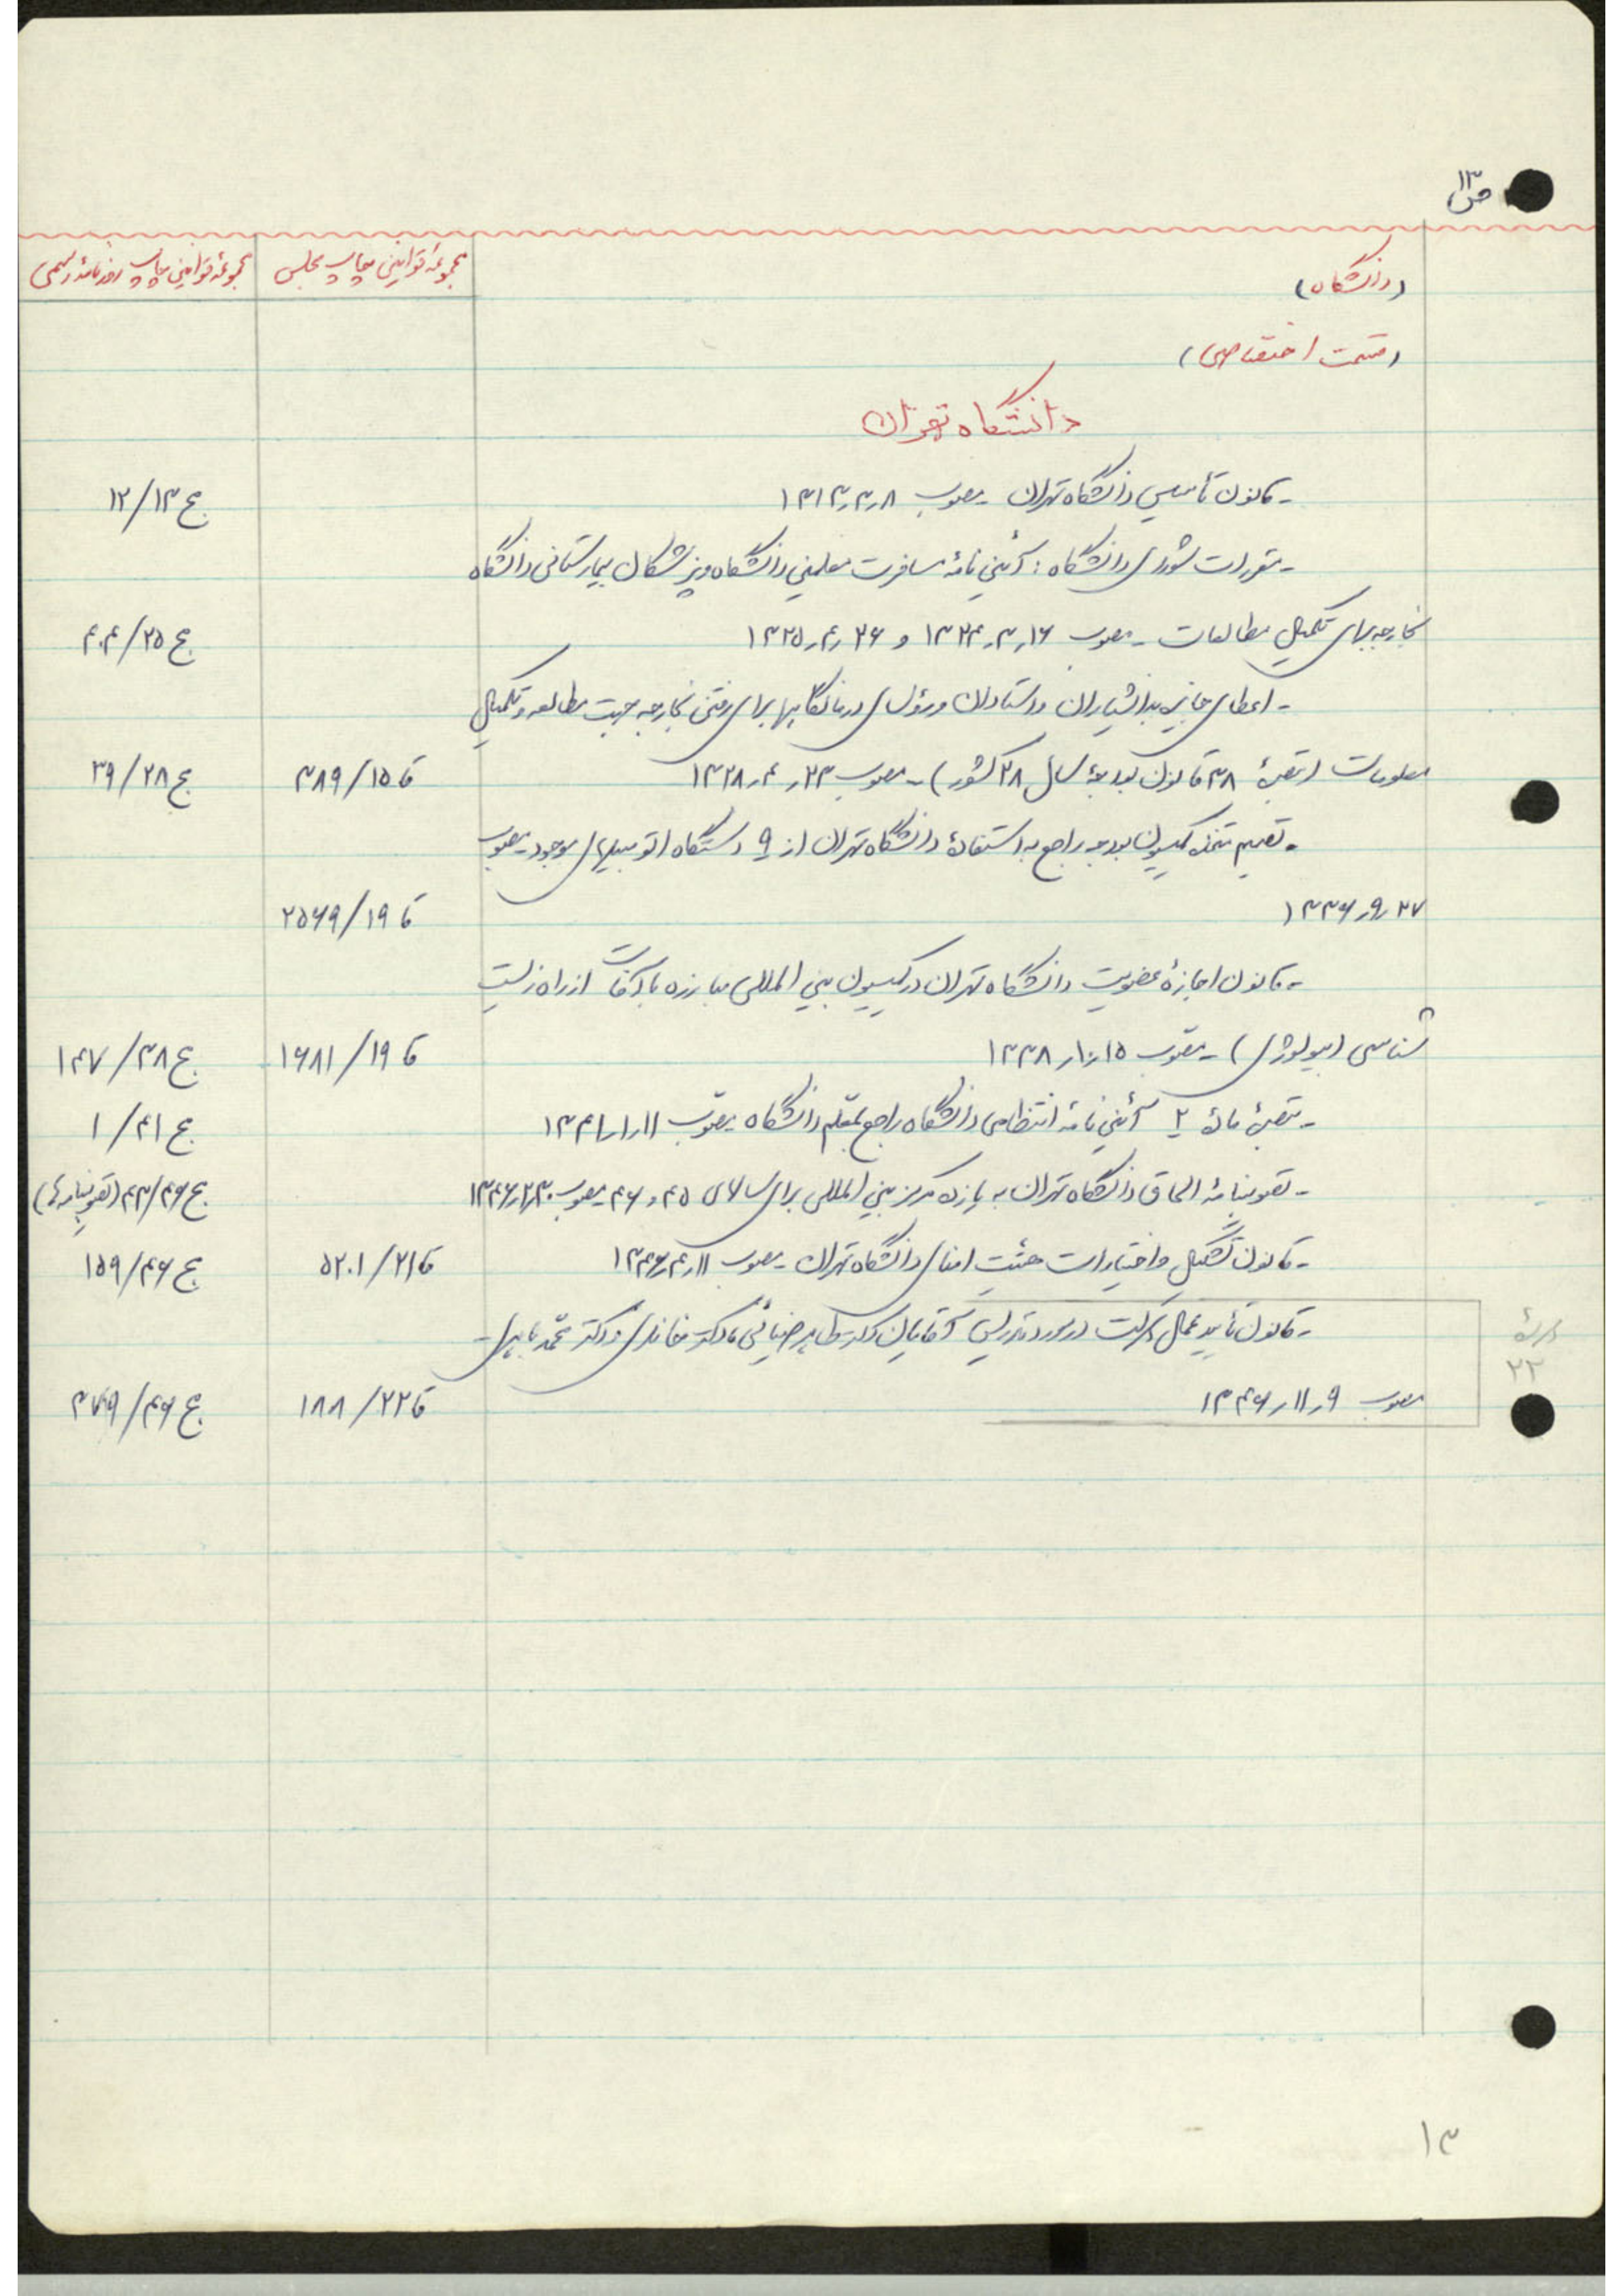 ص ۱۳
(دانشگاه) مجموعهٔ قوانین چاپ مجلس مجموعهٔ قوانین چاپ روزنامهٔ رسمی
(قسمت اختصاصی)
دانشگاه تهران
- قانون تأسیس دانشگاه تهران - مصوب ۸ر۳ر۱۳۱۳ ج ۱۳/۱۲
- مقررات شورای دانشگاه: آئین نامهٔ مسافرت معلمین دانشگاه و پزشکان بیمارستانی دانشگاه
بخارجه برای تکمیل مطالعات - مصوب ۱۶ر۳ر۱۳۲۴ و ۲۶ر۴ر۱۳۲۵ ج ۲۵/۴۰۴
- اعطای جایزه بدانشیاران و استادان و رؤسای درمانگاهها برای رفتن بخارجه جهت مطالعه و تکمیل
معلومات (تبصرهٔ ۳۸ قانون بودجهٔ سال ۲۸ کشور) - مصوب ۲۳ر۴ر۱۳۲۸ قا ۱۵/۳۸۹ ج ۲۸/۳۹
- تصمیم متخذه کمیسیون بودجه راجع به استفادهٔ دانشگاه تهران از ۹ دستگاه اتومبیلهای موجود - مصوب
۲۷ر۹ر۱۳۳۶ قا ۱۹/۲۵۶۹
- قانون اجازهٔ عضویت دانشگاه تهران در کمیسیون بین المللی مبارزه با آفات از راه زیست
شناسی (بیولوژی) - مصوب ۱۵ر۱۰ر۱۳۳۸ قا ۱۹/۱۶۸۱ ج ۳۸/۱۴۷
- تبصرهٔ مادهٔ ۲ آئین نامهٔ انتظامی دانشگاه راجع بمعلم دانشگاه - مصوب ۱۱ر۱ر۱۳۴۱ ج ۴۱/۱
- تصویبنامهٔ الحاق دانشگاه تهران به یازده مرکز بین المللی برای سالهای ۴۵ و ۴۶ - مصوب ۳۰ر۲ر۱۳۴۶ ج ۴۶/۴۳ (تصویبنامه‌ها)
- قانون تشکیل و اختیارات هیئت امنای دانشگاه تهران - مصوب ۱۱ر۴ر۱۳۴۶ قا ۲۱/۵۲۰۱ ج ۴۶/۱۵۹
- قانون تأیید عمل دولت در مورد تدریس آقایان دکتر طاهر ضیائی و دکتر و دکتر محمد باهری -
مصوب ۹ر۱۱ر۱۳۴۶ قا ۲۲/۱۸۸ ج ۴۶/۳۷۹
دورهٔ
۲۲
۱۳